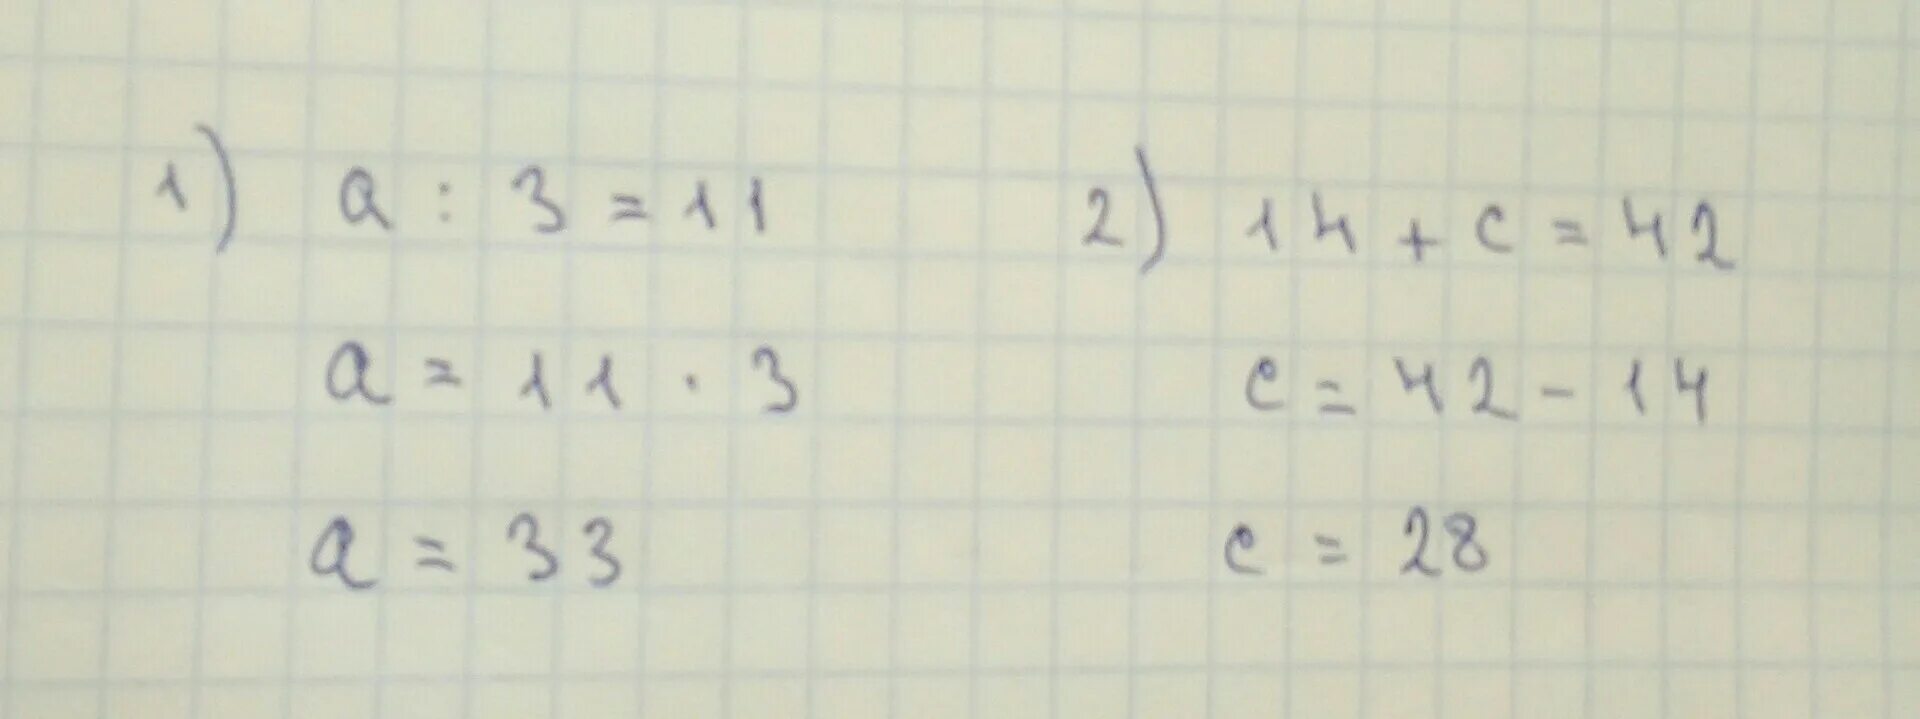 1) a : 3 = 11
a = 11 · 3
a = 33
2) 14 + c = 42
c = 42 - 14
c = 28